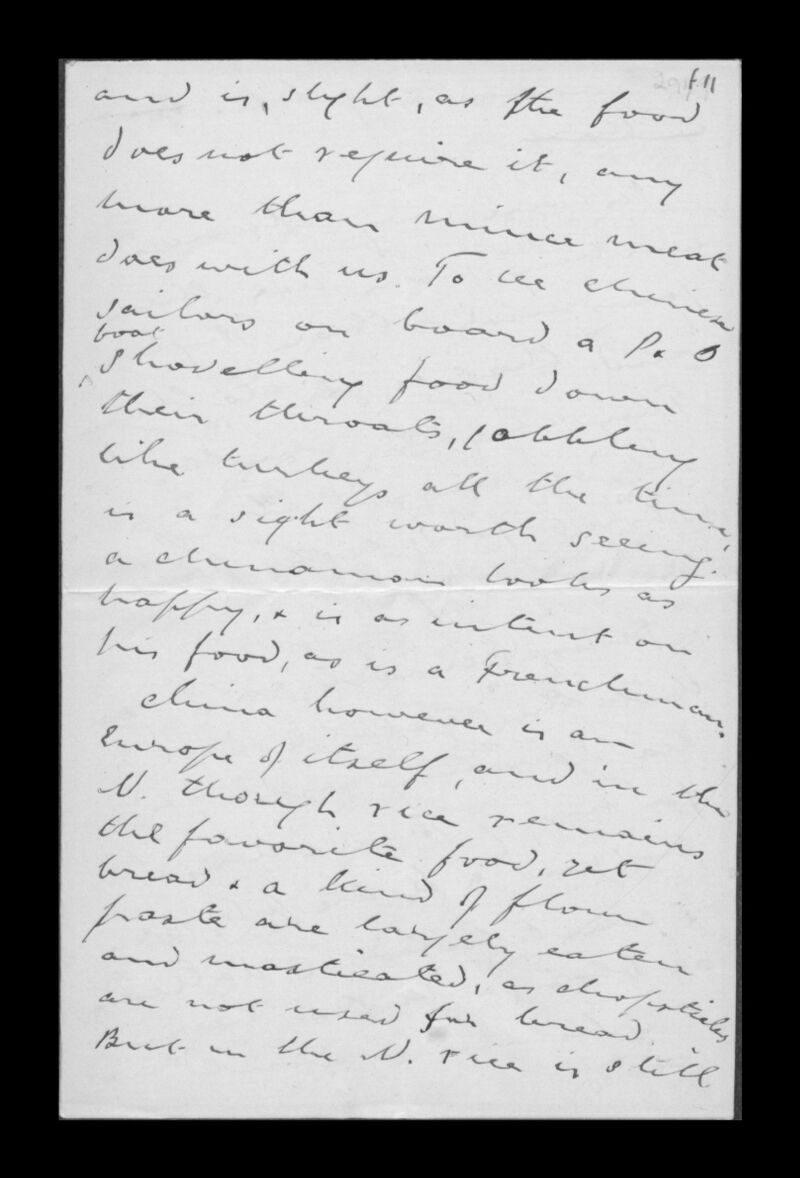 f11
and is, slight, as the food
does not require it, any
more than mince meat
does with us. To see chinese
sailors on board a P & O
boat
shovelling food down
their throats, gobbling
like turkeys all the time,
is a sight worth seeing.
a chinaman looks as
happy, & is as intent on
his food, as is a Frenchman.
China however is an
Europe of itself, and in the
N. though rice remains
the favorite food, yet
bread & a kind of flour
paste are largely eaten
and masticated, as chopsticks
are not used for bread.
But in the N. rice is still